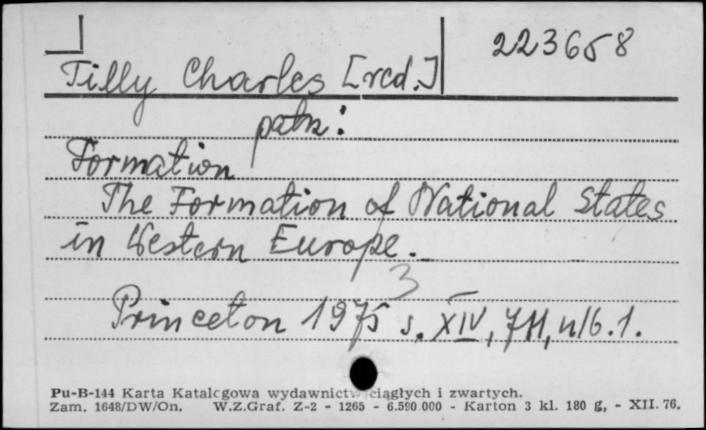 223658
Tilly Charles [red.]
patrz:
Formation
The Formation of National States
in Western Europe.
3
Princeton 1975 s. XIV, 711, nlb. 1.
Pu-B-144 Karta Katalogowa wydawnictw ciągłych i zwartych.
Zam. 1648/DW/On. W.Z.Graf. Z-2 - 1265 - 6.590 000 - Karton 3 kl. 180 g, - XII. 76.